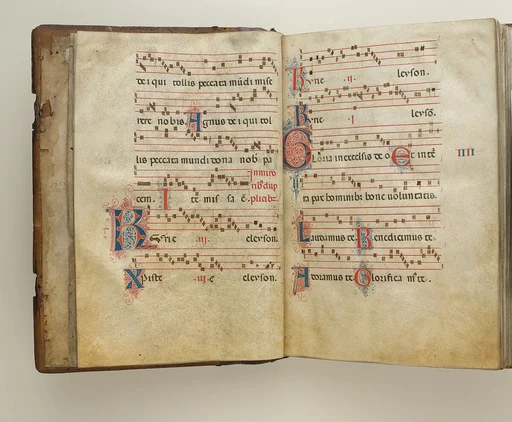 de i qui tollis peccata mũdi mise
rere nobis. Agnus de i qui tol
lis peccata mundi dona nob pa
cem. Ite mis sa ē.
Kyrie .iii. eleyson.
Xpiste .iii. e eleyson.
Kyrie .ii. leyson.
Kyrie .i. leysō.
Gloria in excelsis de o Et in tr̄
ra pax hominibꝫ bone voluntatis.
Laudamus te. Benedicimus te.
Adoramus te Glorifica m᷒ te.
IIII